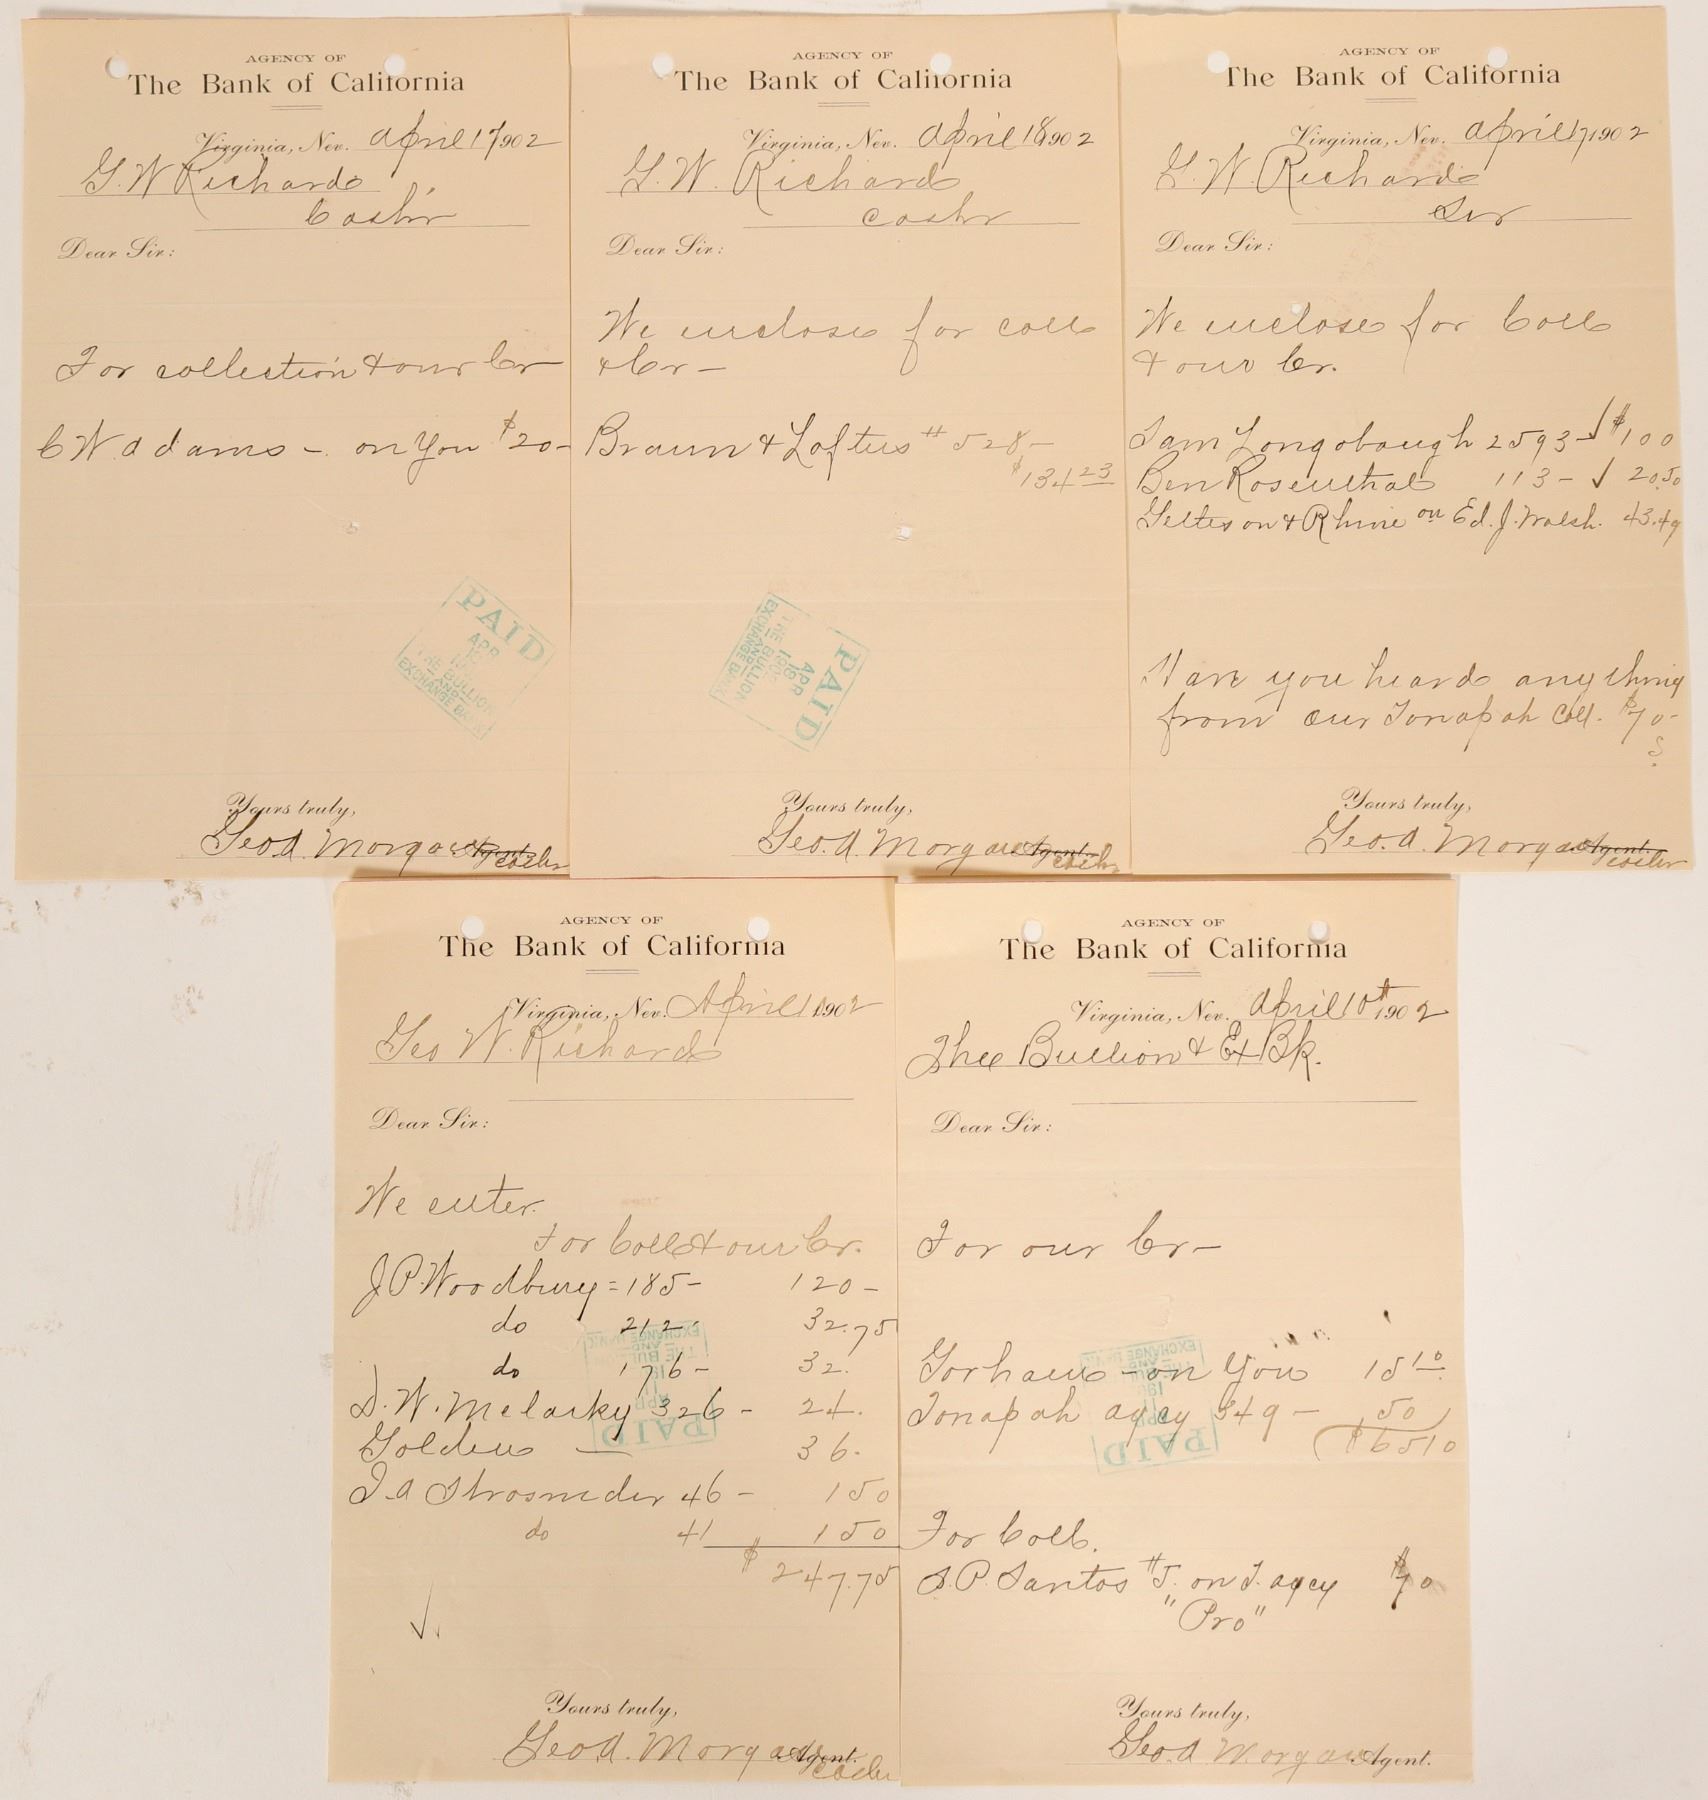 AGENCY OF
The Bank of California
Virginia, Nev. April 17 1902
G. W. Richards
Cashr
Dear Sir:
For collection & our Cr
C W Adams - on you $20-
PAID
APR
THE BULLION
-AND-
EXCHANGE BANK
Yours truly,
Geo. A. Morgan Agent.
AGENCY OF
The Bank of California
Virginia, Nev. April 18 1902
G. W. Richards
Cashr
Dear Sir:
We enclose for coll
& Cr -
Braun & Loftus # 528-
$134.23
PAID
APR
18
1902
THE BULLION
-AND-
EXCHANGE BANK
Yours truly,
Geo. A. Morgan Agent.
AGENCY OF
The Bank of California
Virginia, Nev. April 17, 1902
G. W. Richards
Dear Sir:
We enclose for Coll
& our Cr.
Sam Longabaugh 2593- √ $100
Ben Rosenthal 113- √ 20.50
& Rhine on Ed. J. Walsh. 43.49
Have you heard anything
from our Tonapah Coll. $70-
?
Yours truly,
Geo. A. Morgan Agent.
AGENCY OF
The Bank of California
Virginia, Nev. April 11 1902
Geo W. Richards
Dear Sir:
We enter.
For Coll & our Cr.
J P. Woodbury = 185- 120-
do 212- 32.75
do 176- 32.
D. W. Melarky 326- 24.
Golden — 36.
J. A Strosnider 46- 1 50
do 41 1 50
$ 247.75
PAID
APR
11
THE BULLION
-AND-
EXCHANGE BANK
√
Yours truly,
Geo. A. Morgan Agent.
AGENCY OF
The Bank of California
Virginia, Nev. April 10th 1902
The Bullion & Ex Bk.
Dear Sir:
For our Cr-
Gorham - on you 15 10
Tonapah agcy 349- 50
$65 10
PAID
THE BULLION
-AND-
EXCHANGE BANK
For Coll.
S. P. Santos #5. on T. agcy $70
"Pro"
Yours truly,
Geo. A Morgan Agent.